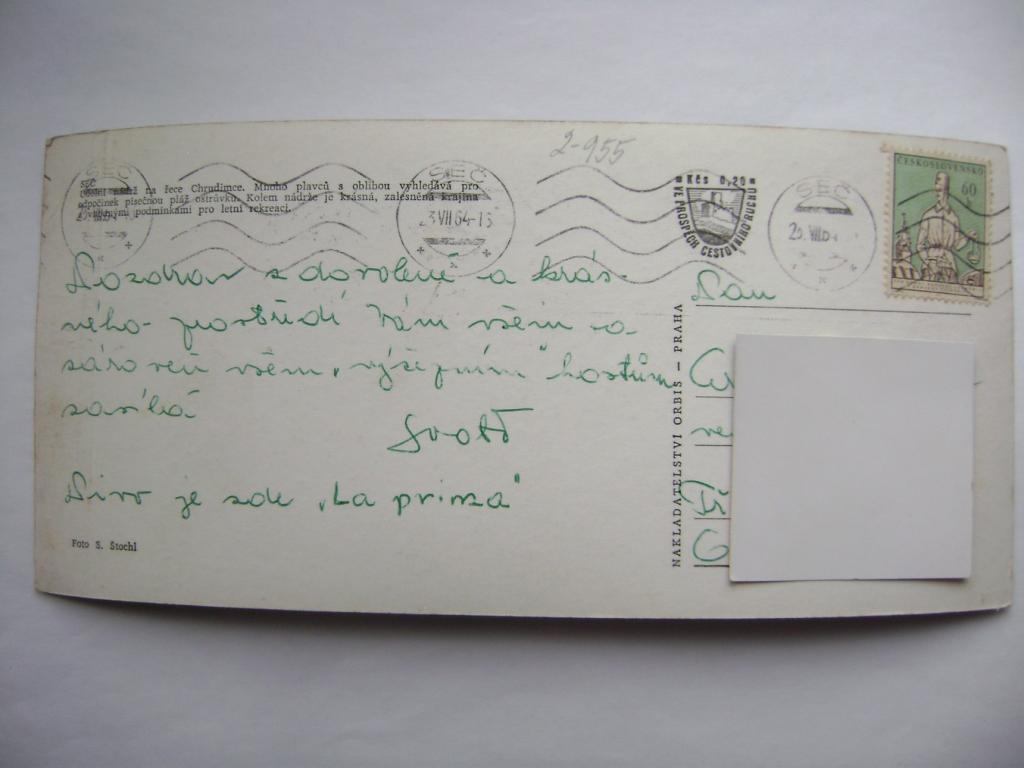 2-955
SEČ
Údolní nádrž na řece Chrudimce. Mnoho plavců s oblibou vyhledává pro
odpočinek písečnou pláž ostrůvku. Kolem nádrže je krásná, zalesněná krajina
s výbornými podmínkami pro letní rekreaci.
SEČ
SEČ
3 VII 64-15
Kčs 0,20
VE PROSPĚCH CESTOVNÍHO RUCHU
SEČ
ČESKOSLOVENSKO
60
Pozdrav z dovolené a krás-
ného prostředí Vám všem a
zároveň všem „výčepním" hostům
zasílá
Pivo je zde „La prima"
Foto S. Štochl
NAKLADATELSTVÍ ORBIS – PRAHA
Pan
ve